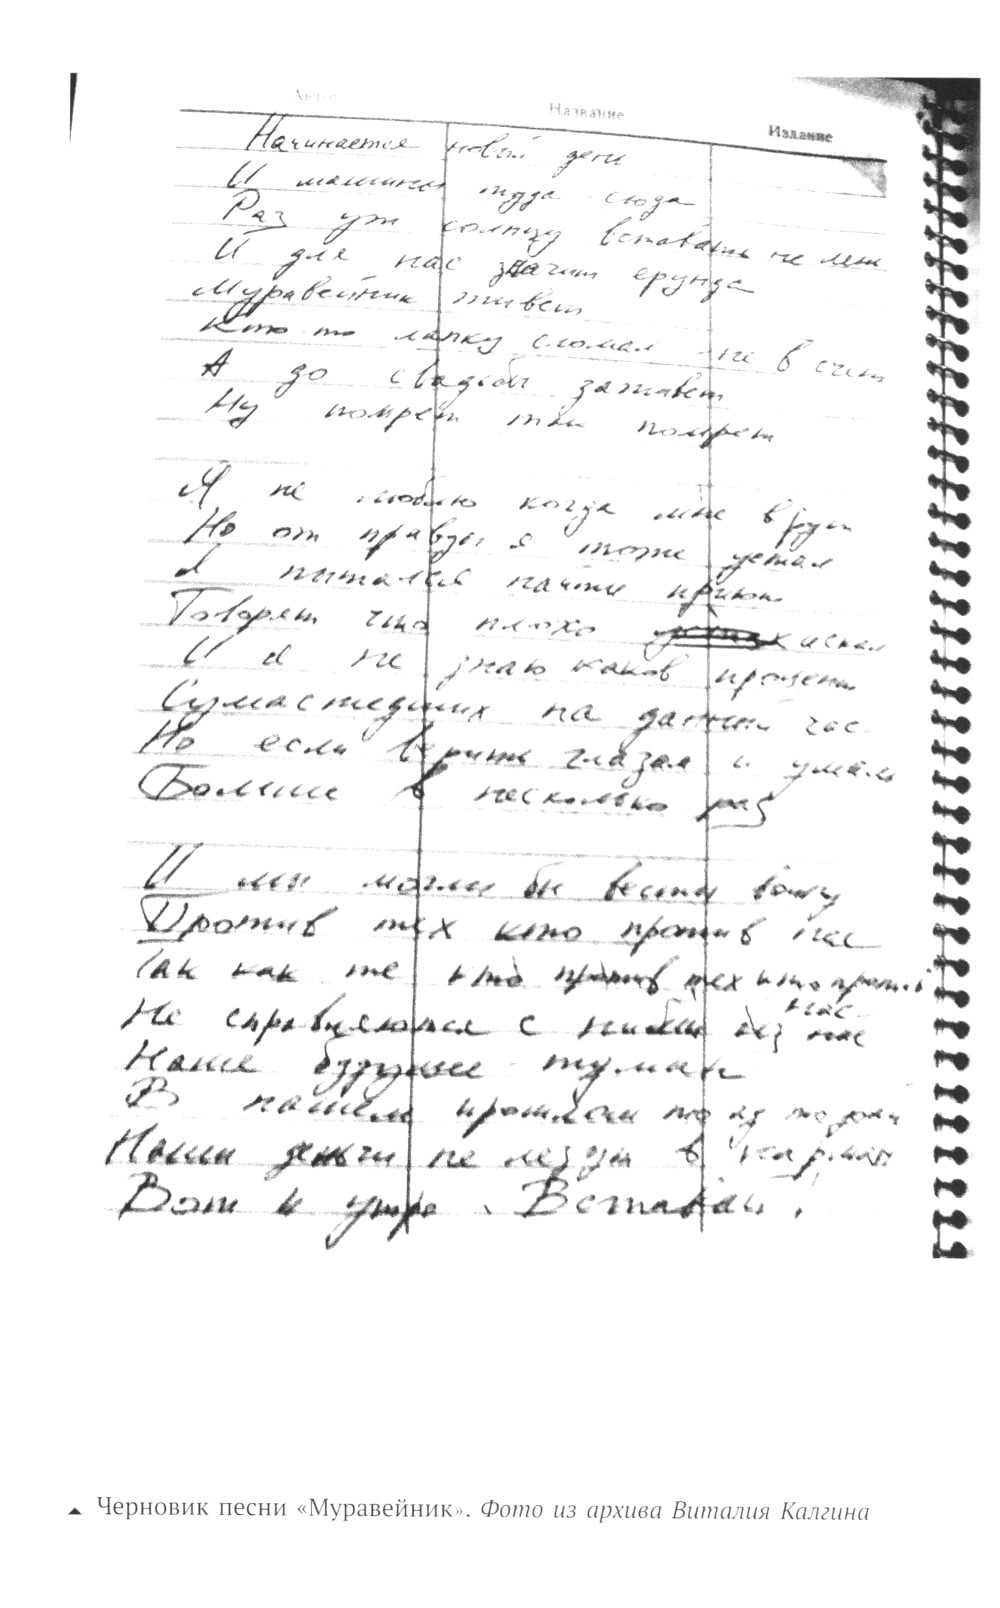 Автор Название Издание
Начинается новый день
И машины туда сюда
Раз уж солнцу вставать не лень
И для нас значит ерунда
Муравейник живет
Кто то лапку сломал не в счет
А до свадьбы заживет
Ну помрет так помрет
Я не люблю когда мне врут
Но от правды я тоже устал
Я пытался найти приют
Говорят что плохо искал
И я не знаю каков процент
Сумасшедших на данный час
Но если верить глазам и ушам
Больше в несколько раз
И мы могли бы вести войну
Против тех кто против нас
Так как те кто против тех кто против
нас
Не справляются с ними без нас
Наше будущее туман
В нашем прошлом то ад то рай
Наши деньги не лезут в карман
Вот и утро. Вставай!
Черновик песни «Муравейник». Фото из архива Виталия Калгина